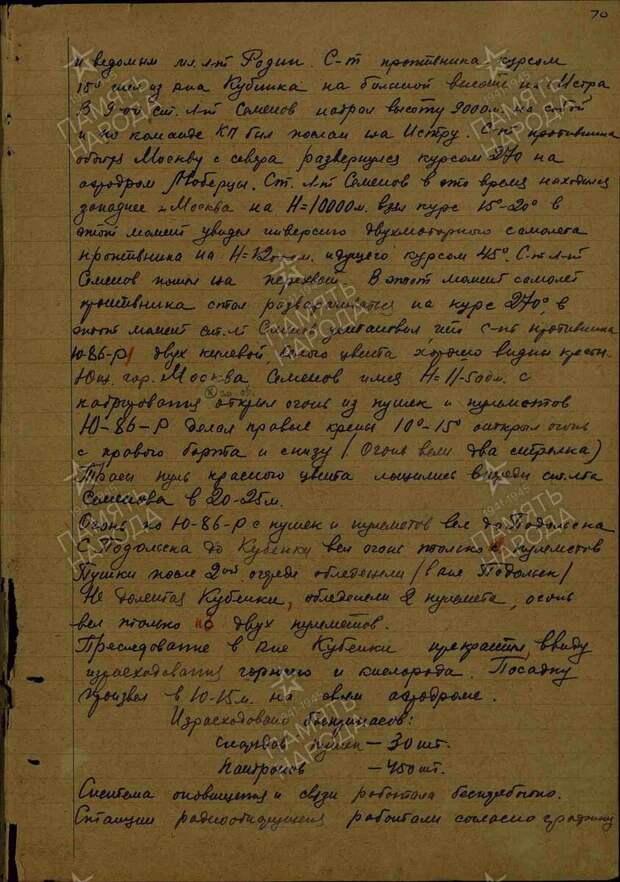 70
и ведомым мл. л-т Родин. С-т противника курсом
15° шел из р-на Кубинка на большой высоте на Истра
В 9-00 ст. л-т Семенов набрал высоту 9000 м.
и по команде КП был послан на Истру. С-т противника
Москву с севера развернулся курсом 270 на
аэродром Люберцы. Ст. л-т Семенов в это время находился
западнее г. Москва на Н=10000 м. взял курс 15°-20° в
этот момент увидел инверсию двухмоторного самолета
противника на Н=12000 м. идущего курсом 45°. Ст. л-т
Семенов пошел на перехват. В этот момент самолет
противника стал разворачиваться на курс 270°, в
этот момент ст. л-т Семенов установил, что с-т противника
Ю-86-Р, двух килевой, белого цвета хорошо видны кресты.
Южн. гор. Москва Семенов имел Н=11-500 м. с
кабрирования открыл огонь из пушек и пулеметов
Ю-86-Р делал правые крены 10°-15° открыл огонь
с правого борта и снизу (Огонь вели два стрелка)
Трассы пуль красного цвета ложились впереди ст. л-та
Семенова в 20-25 м.
Огонь по Ю-86-Р с пушек и пулеметов вел до Подольска
С Подольска до Кубинки вел огонь только с пулеметов
Пушки после 2ой очереди обледенели (в р-не Подольск)
Не долетая Кубинки, обледенели 2 пулемета, огонь
вел только из двух пулеметов.
Преследование в р-не Кубинки прекратил, ввиду
израсходования горючего и кислорода. Посадку
произвел в 10-15 м. на своем аэродроме.
Израсходовано боеприпасов:
Снарядов пушек – 30 шт.
Патронов – 450 шт.
Система оповещения и связи работала бесперебойно.
Станции радионаведения работали согласно графику
ПАМЯТЬ НАРОДА
1941-1945